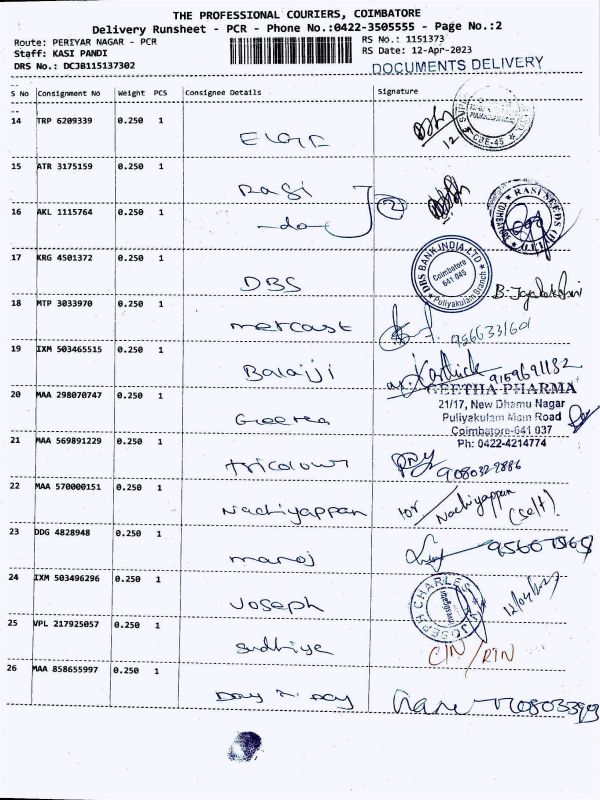 THE PROFESSIONAL COURIERS, COIMBATORE
Delivery Runsheet - PCR - Phone No.:0422-3505555 - Page No.:2
Route: PERIYAR NAGAR - PCR
RS No.: 1151373
Staff: KASI PANDI
RS Date: 12-Apr-2023
DRS No.: DCJB115137302
DOCUMENTS DELIVERY
S No Consignment No Weight PCS Consignee Details Signature
14 TRP 6209339 0.250 1
CBE-45
15 ATR 3175159 0.250 1
Rasi
RASI SEEDS (P) LTD
16 AKL 1115764 0.250 1
-do- 2
17 KRG 4501372 0.250 1
DBS
DBS BANK INDIA LTD
Coimbatore
641 045
Puliyakulam Branch
18 MTP 3033970 0.250 1
metcast
19 IXM 503465515 0.250 1
Balajji
Karthick 9159691182
20 MAA 298070747 0.250 1
Geetha
GEETHA PHARMA
21/17, New Dhamu Nagar
Puliyakulam Main Road
Coimbatore-641 037
Ph: 0422-4214774
21 MAA 569891229 0.250 1
tricolour
22 MAA 570000151 0.250 1
Nachiyappan
Nachiyappan
(self)
23 DDG 4828948 0.250 1
manoj
24 IXM 503496296 0.250 1
Joseph
JOSEPH CHARLES
25 VPL 217925057 0.250 1
sudhiya
C/N / RTN
26 MAA 858655997 0.250 1
Day 2 Day